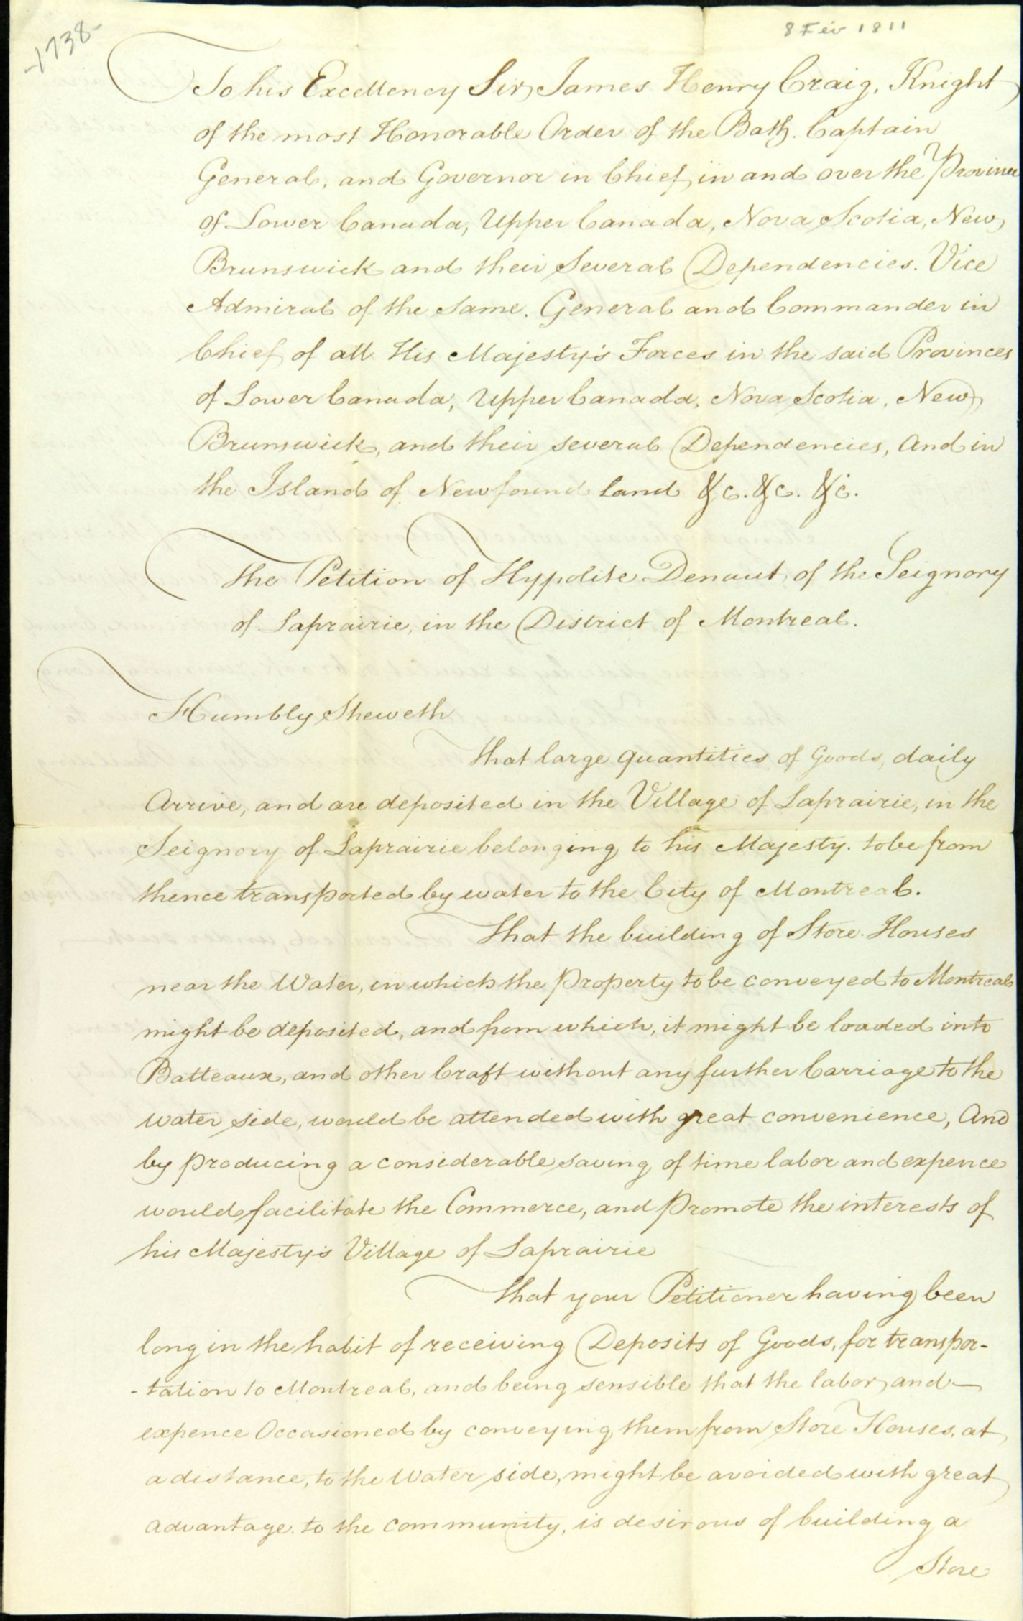 -1738-
8 Fév 1811
To his Excellency Sir James Henry Craig, Knight
of the most Honorable Order of the Bath. Captain
General, and Governor in Chief, in and over the Province
of Lower Canada, Upper Canada, Nova Scotia, New
Brunswick and their Several Dependencies. Vice
Admiral of the Same. General and Commander in
Chief, of all His Majesty's Forces in the said Provinces
of Lower Canada, Upper Canada, Nova Scotia, New
Brunswick, and their several Dependencies, And in
the Island of Newfound land &c. &c. &c.
The Petition of Hypolite Denaut, of the Seignory
of Laprairie, in the District of Montreal.
Humbly Sheweth
That large quantities of Goods, daily
Arrive, and are deposited in the Village of Laprairie, in the
Seignory of Laprairie belonging to his Majesty. to be from
thence transported by water to the City of Montreal.
That the building of Store Houses
near the Water, in which the Property to be conveyed to Montreal
might be deposited, and from which, it might be loaded into
Batteaux, and other Craft without any further Carriage to the
water side, would be attended with great convenience, And
by producing a considerable saving of time labor and expence
would facilitate the Commerce, and Promote the interests of
his Majesty's Village of Laprairie
That your Petitioner having been
long in the habit of receiving Deposits of Goods, for transpor-
-tation to Montreal, and being sensible that the labor, and
expence Occasioned by conveying them from Store Houses, at
a distance, to the Water side, might be avoided with great
advantage to the community, is desirous of building a
Store